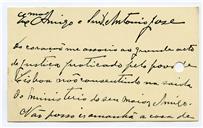 Amigo e Sr. Antonio José
De coração me associo ao grande acto
de justiça praticado pelo povo de
Lisboa não consentindo na saida
do ministerio do seu maior Amigo.
Não posso ir amanhã a casa de